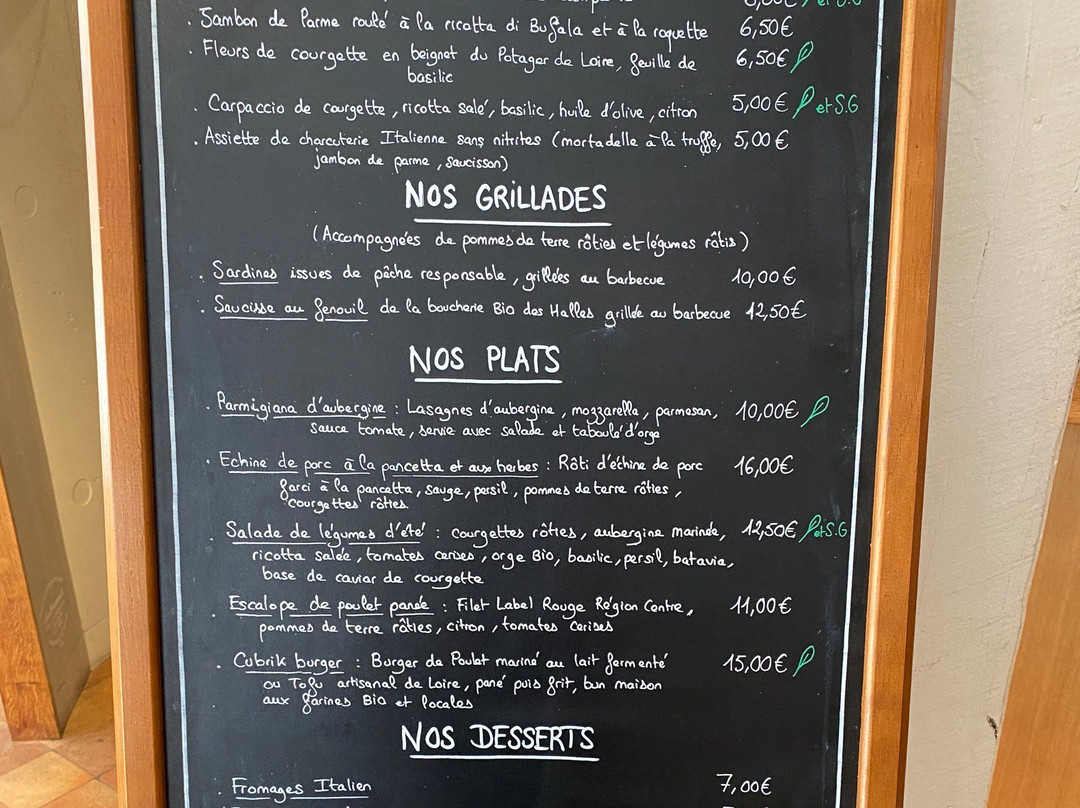 . Jambon de Parme roulé à la ricotta di Bufala et à la roquette 6,50€
. Fleurs de courgette en beignet du Potager de Loire, feuille de 6,50€
basilic
. Carpaccio de courgette, ricotta salé, basilic, huile d'olive, citron 5,00€ et S.G
. Assiette de charcuterie Italienne sans nitrites (mortadelle à la truffe, 5,00€
jambon de parme, saucisson)
NOS GRILLADES
(Accompagnées de pommes de terre rôties et légumes rôtis)
. Sardines issues de pêche responsable, grillées au barbecue 10,00€
. Saucisse au fenouil de la boucherie Bio des Halles grillée au barbecue 12,50€
NOS PLATS
. Parmigiana d'aubergine : Lasagnes d'aubergine, mozzarella, parmesan, 10,00€
sauce tomate, servie avec salade et taboulé d'orge
. Echine de porc à la pancetta et aux herbes : Rôti d'échine de porc 16,00€
farci à la pancetta, sauge, persil, pommes de terre rôties,
courgettes rôties.
. Salade de légumes d'été : courgettes rôties, aubergine marinée, 12,50€ et S.G
ricotta salée, tomates cerises, orge Bio, basilic, persil, batavia,
base de caviar de courgette
. Escalope de poulet panée : Filet Label Rouge Région Centre, 11,00€
pommes de terre rôties, citron, tomates cerises
. Cubrik burger : Burger de Poulet mariné au lait fermenté 15,00€
ou Tofu artisanal de Loire, pané puis frit, bun maison
aux farines Bio et locales
NOS DESSERTS
. Fromages Italien 7,00€